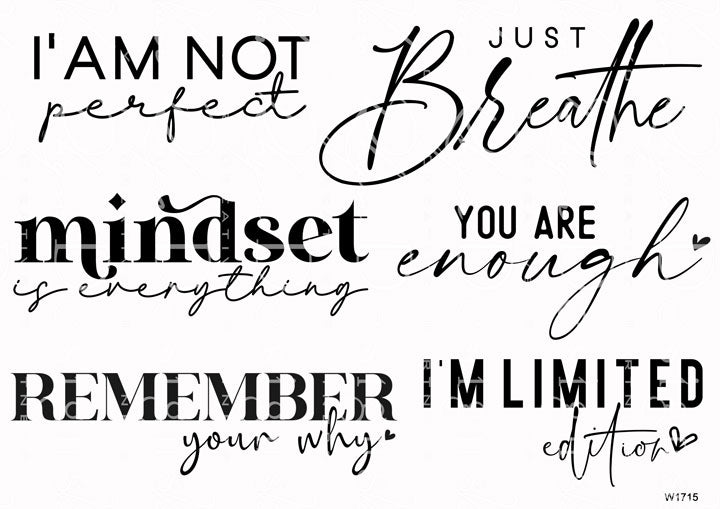 I'AM NOT
perfect
JUST
Breathe
mindset
is everything
YOU ARE
enough
REMEMBER
your why
I'M LIMITED
edition
W1715